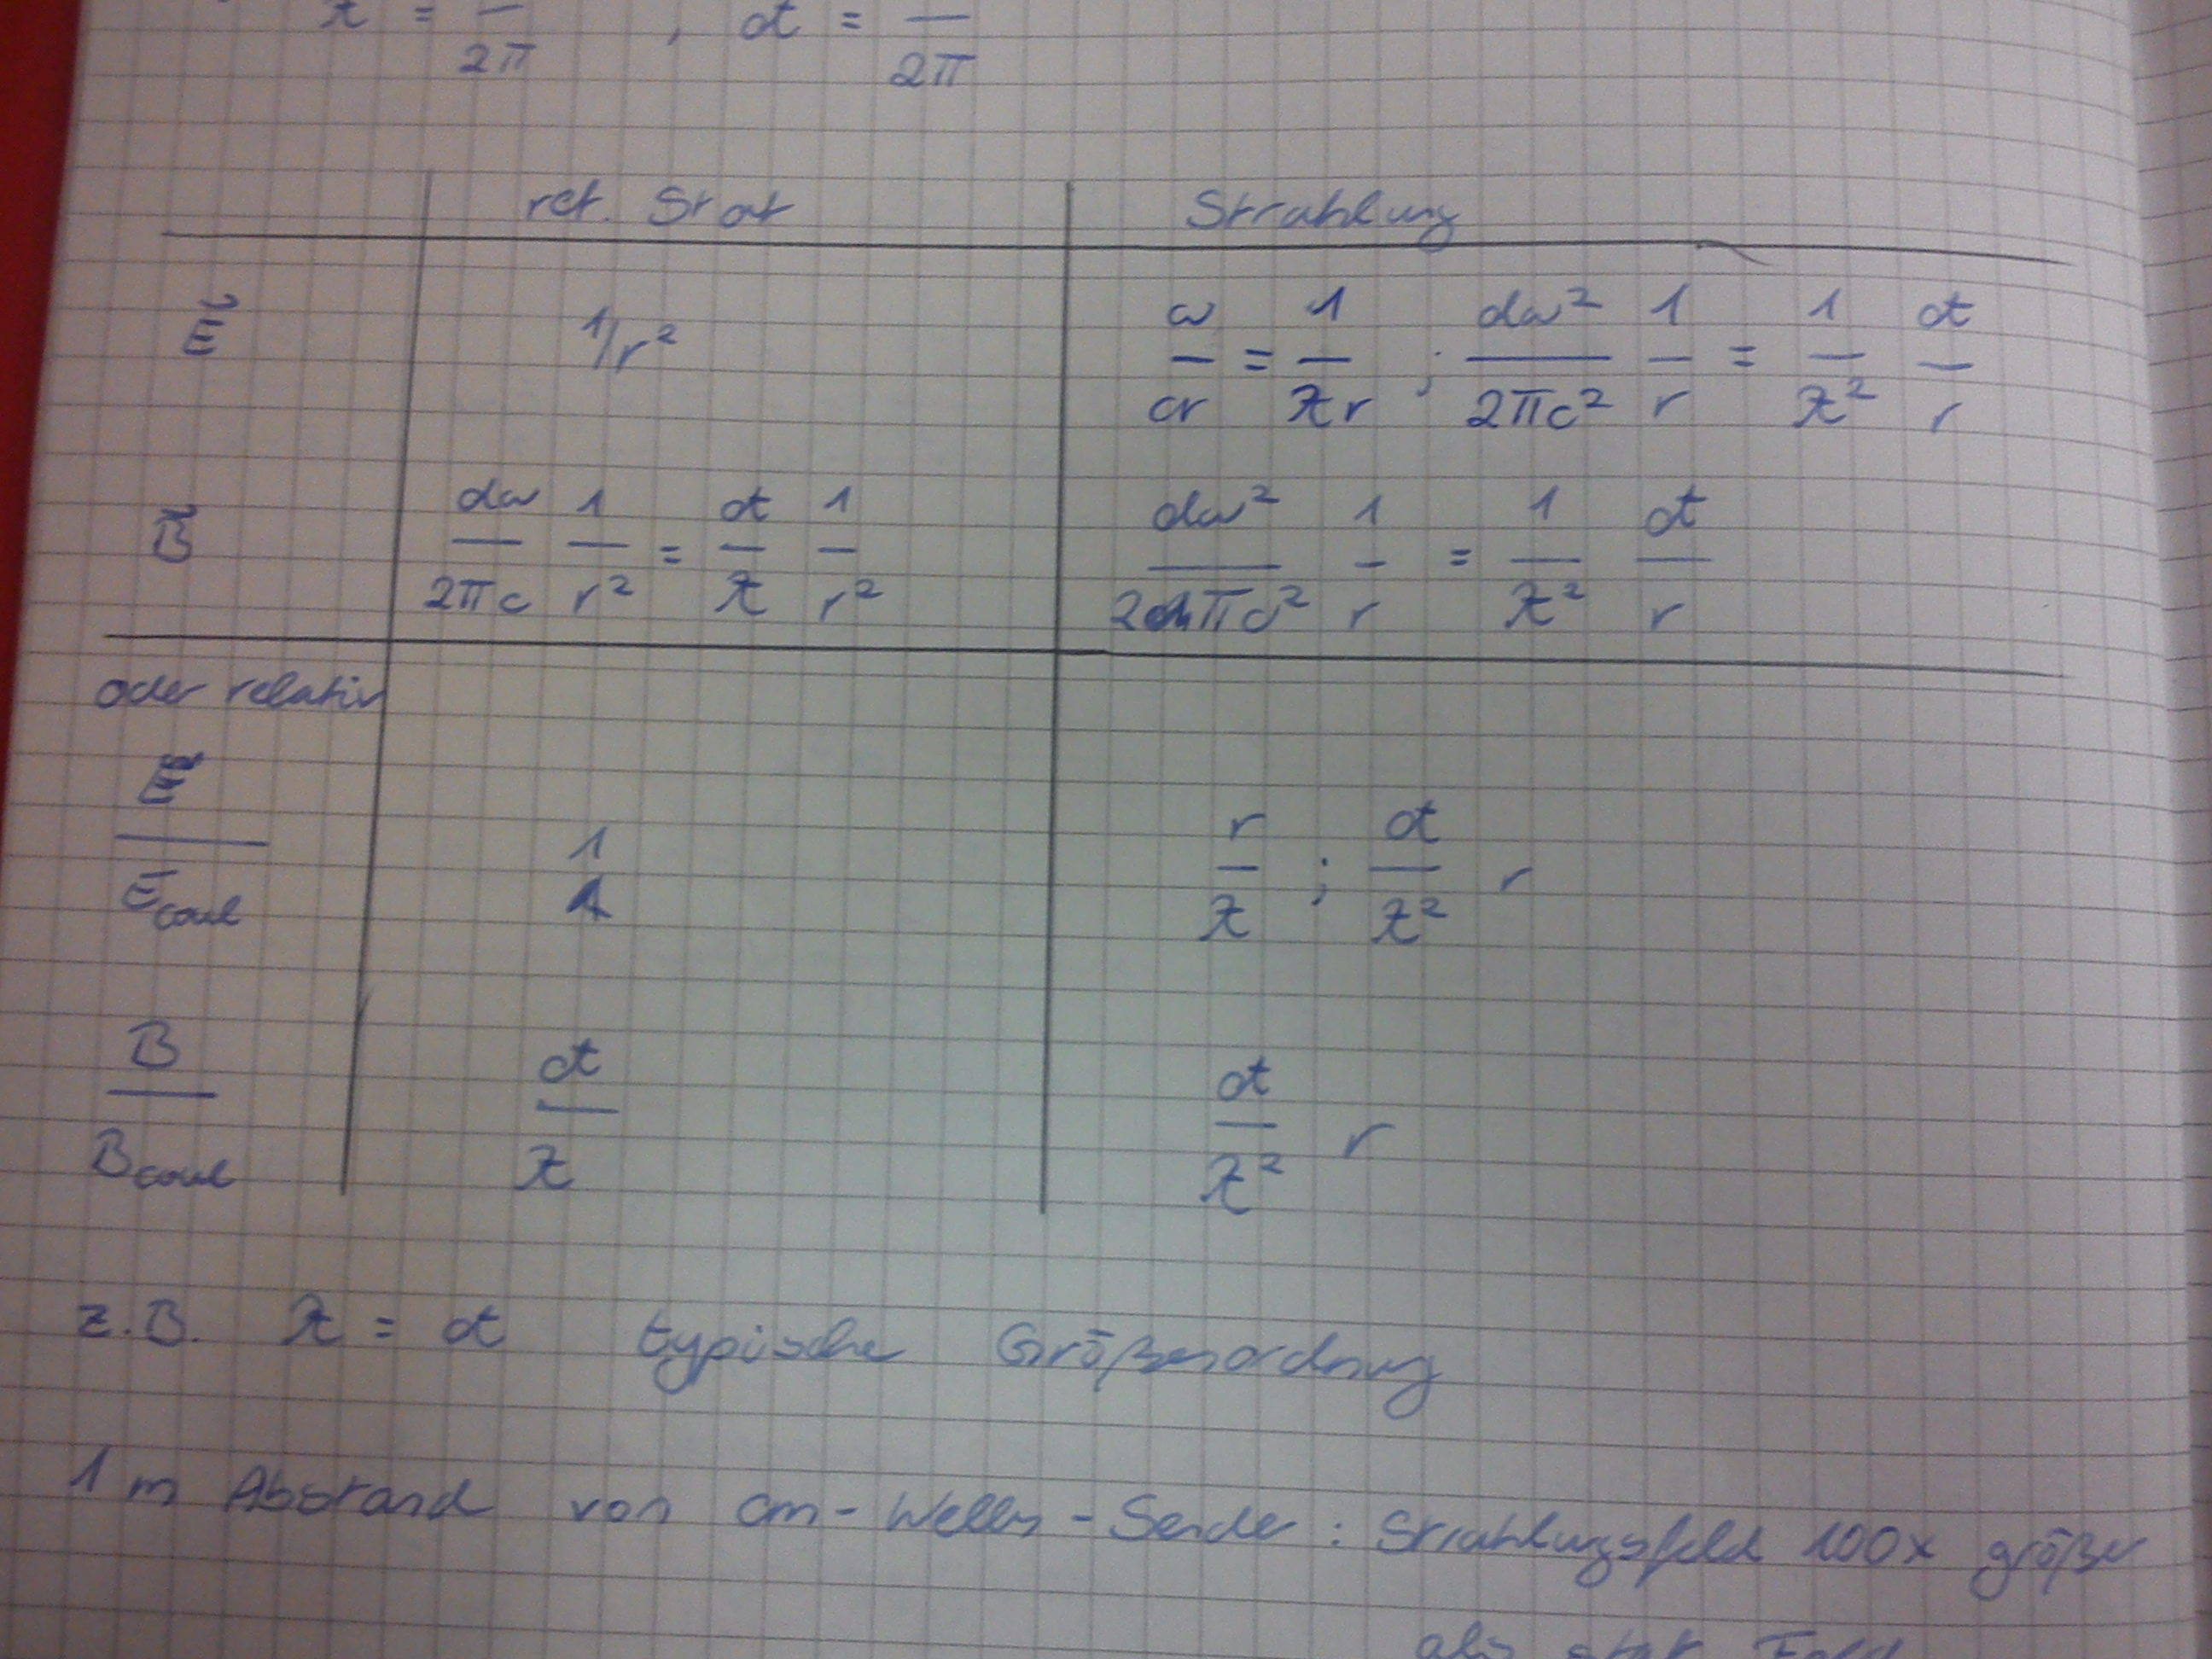 ƛ = — / 2π , đ = — / 2π
ret. Stat Strahlung
E⃗ 1/r² ω/cr = 1/ƛr ; dω²/2πc² 1/r = 1/ƛ² đ/r
B⃗ dω/2πc 1/r² = đ/ƛ 1/r² dω²/2πc² 1/r = 1/ƛ² đ/r
oder relativ
E/E_coul 1 r/ƛ ; đ/ƛ² r
B/B_coul đ/ƛ đ/ƛ² r
z.B. ƛ = đ typische Größenordnung
1 m Abstand von cm-Wellen-Sender : Strahlungsfeld 100x größer
als stat Feld